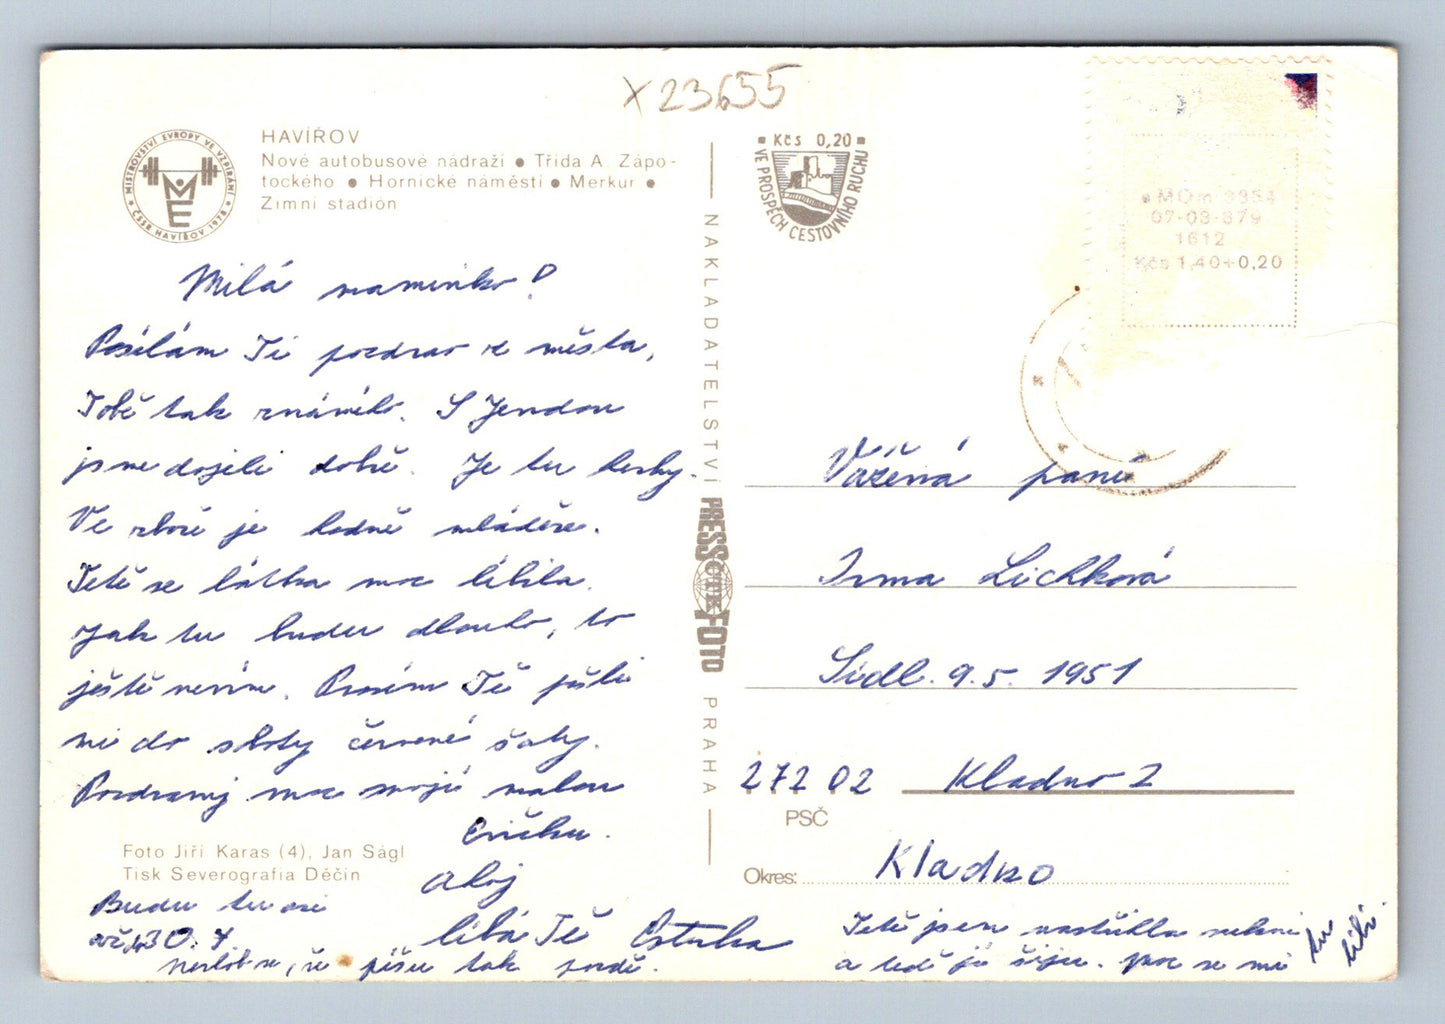 X 23655
MISTROVSTVÍ EVROPY VE VZPÍRÁNÍ
ČSSR HAVÍŘOV 1978
ME
HAVÍŘOV
Nové autobusové nádraží ● Třída A. Zápo-
tockého ● Hornické náměstí ● Merkur ●
Zimní stadión
Milá maminko!
Posílám Ti pozdrav z města,
Tobě tak známého. S Jendou
jsme dojeli dobře. Je tu hezky.
Ve sboře je hodně mládeže.
Tetě se látka moc líbila.
Jak tu budu dlouho, to
ještě nevím. Prosím Tě pošli
mi do soboty červené šaty.
Pozdravuj moc moji malou
Evičku.
Ahoj
líbá Tě
Foto Jiří Karas (4), Jan Ságl
Tisk Severografia Děčín
Budu tu asi
do 30. 7
nezlob se, že píšu tak pozdě.
NAKLADATELSTVÍ
PRESSFOTO
PRAHA
Kčs 0,20
VE PROSPĚCH CESTOVNÍHO RUCHU
07-08-879
1612
Kčs 1,40+0,20
Vážená paní
Irma Lichková
Sídl. 9.5. 1951
272 02 Kladno 2
PSČ
Okres: Kladno
Tetě jsem nastříhla sukni
a teď ji šiju. Moc se mi
tu líbí.